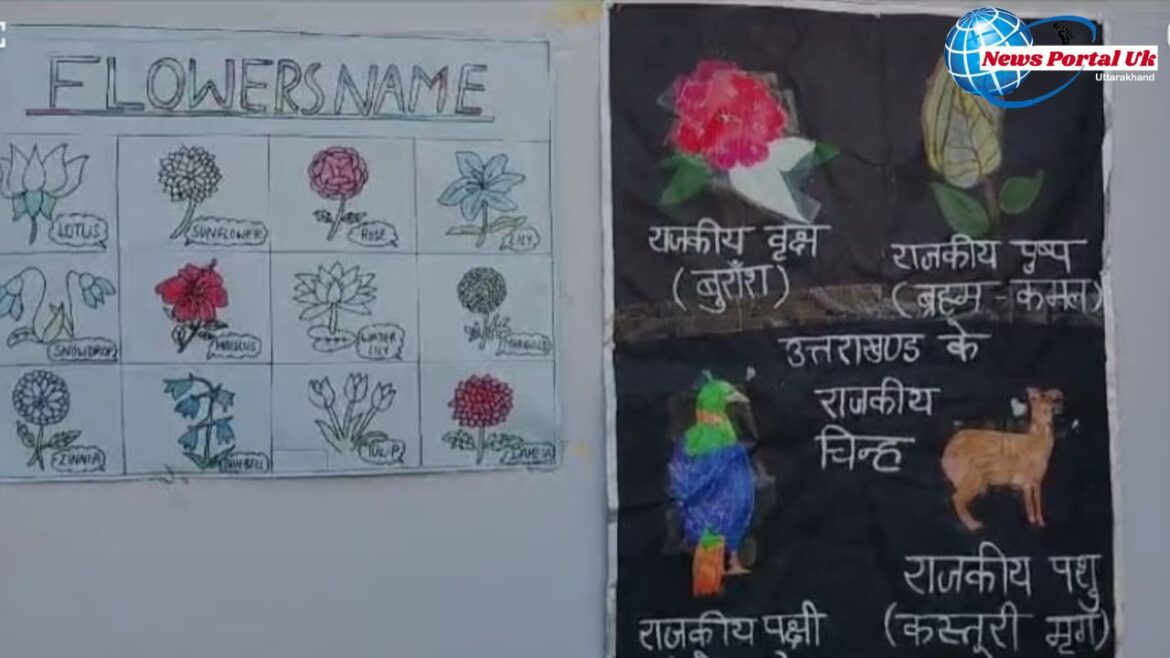 FLOWERS NAME
LOTUS
SUNFLOWER
ROSE
LILY
SNOWDROP
HIBISCUS
WATER
LILY
MARIGOLD
ZINNIA
TULIP
राजकीय वृक्ष
(बुराँश)
राजकीय पुष्प
(ब्रह्म - कमल)
उत्तराखण्ड के
राजकीय
चिन्ह
राजकीय पक्षी
राजकीय पशु
(कस्तूरी मृग)
News Portal Uk
Uttarakhand